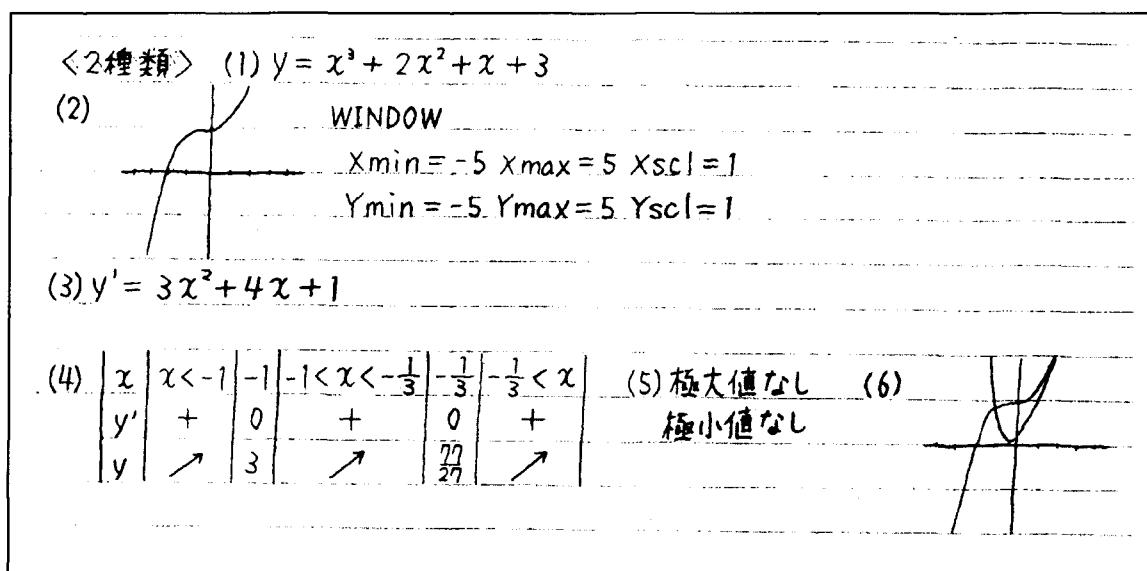 〈2種類〉 (1) y = x³ + 2x² + x + 3
(2)
WINDOW
Xmin = -5 Xmax = 5 Xscl = 1
Ymin = -5 Ymax = 5 Yscl = 1
(3) y' = 3x² + 4x + 1
(4) | x | x < -1 | -1 | -1 < x < -1/3 | -1/3 | -1/3 < x | (5) 極大値なし (6)
| y' | + | 0 | + | 0 | + | 極小値なし
| y | ↗ | 3 | ↗ | 77/27 | ↗ |